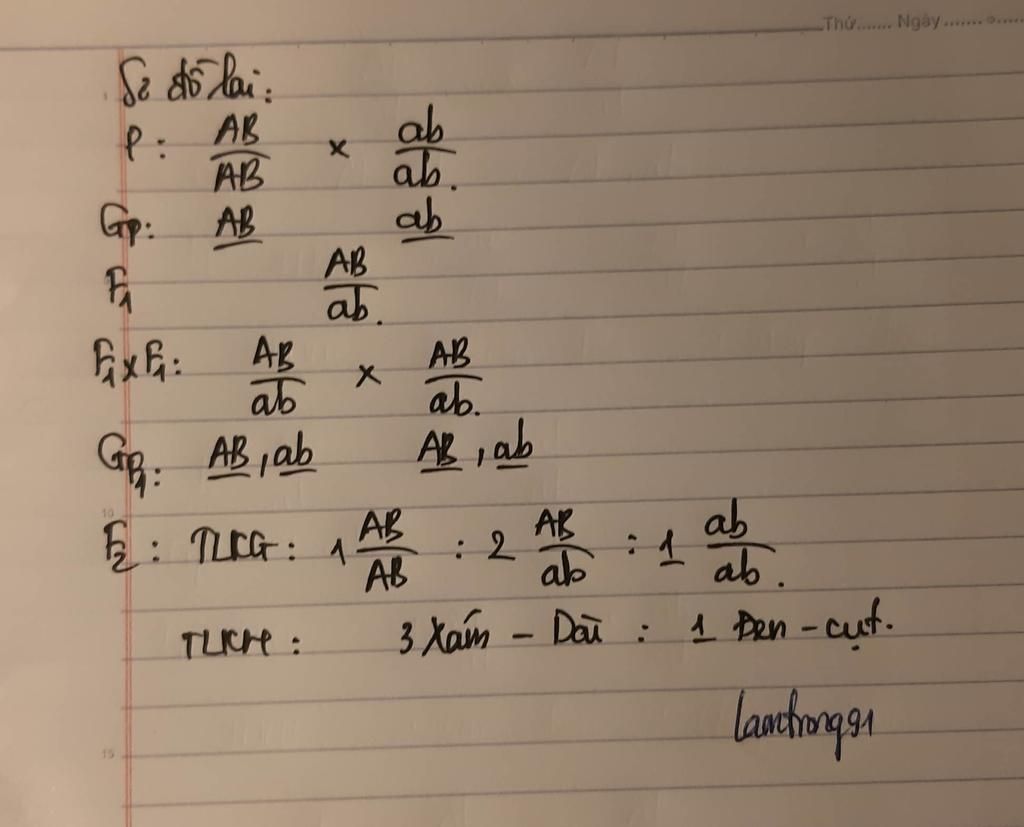 Thứ....... Ngày .......
Sơ đồ lai:
P: AB/AB × ab/ab.
Gp: AB ab
F1 AB/ab.
F1×F1: AB/ab × AB/ab.
GF1: AB, ab AB, ab
10
F2: TLKG: 1 AB/AB : 2 AB/ab : 1 ab/ab.
TLKH: 3 Xám - Dài : 1 Đen - cụt.
lamtrong91
15